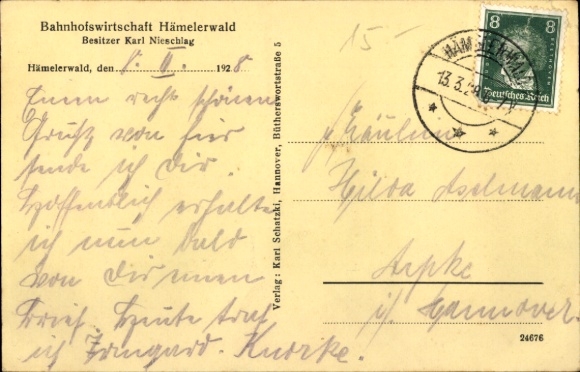 Bahnhofswirtschaft Hämelerwald
Besitzer Karl Nieschlag
Hämelerwald, den 1. III. 1928
Einen recht schönen
Gruß von hier
sende ich Dir.
Hoffentlich erhalte
ich nun bald
von Dir einen
Brief. Heute traf
ich Irmgard. Knorke.
Verlag: Karl Schatzki, Hannover, Bütherswortstraße 5
15-
13.3.28
8 8
Deutsches Reich
Fräulein
Hilda Aselmann
Arpke
i/ Hannover.
24676